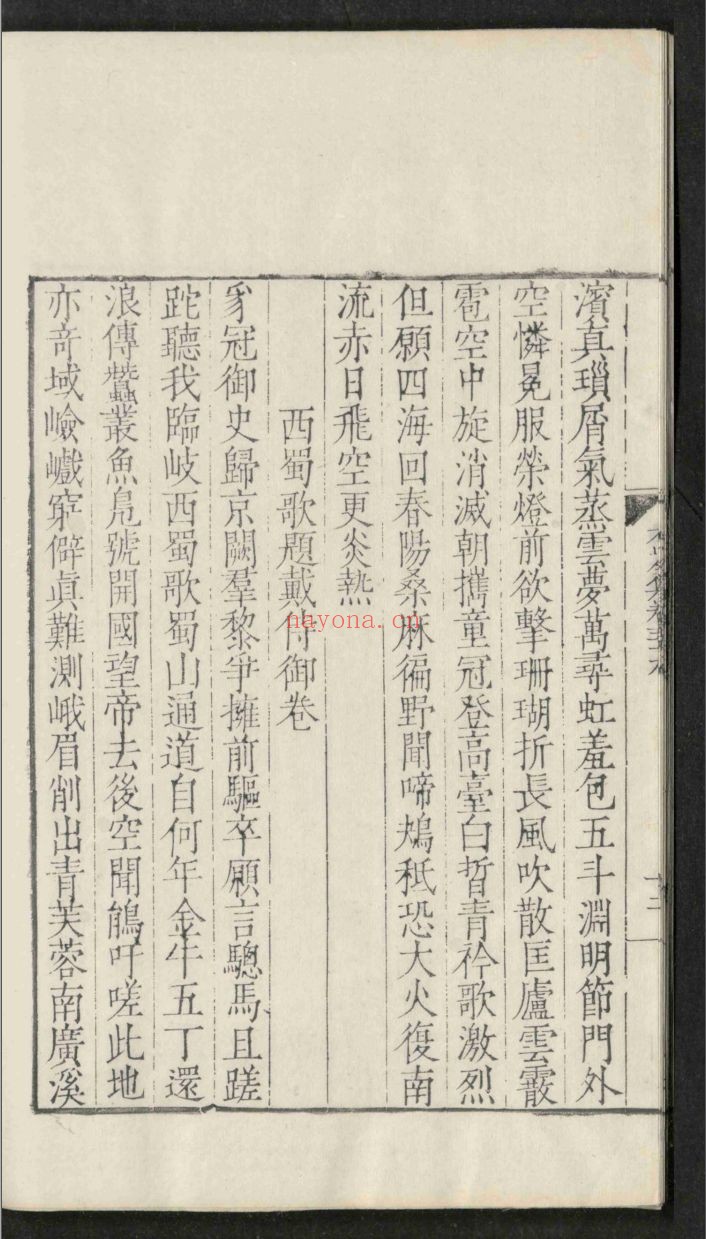 濱真瑣屑氣蒸雲夢萬尋虹羞包五斗淵明節門外
空憐冕服榮燈前欲擊珊瑚折長風吹散匡廬雲霰
雹空中旋消滅朝攜童冠登高臺白晳青衿歌激烈
但願四海回春陽桑麻徧野聞啼鴂秪恐大火復南
流赤日飛空更炎熱
西蜀歌題戴侍御卷
豸冠御史歸京闕羣黎爭擁前驅卒願言驄馬且蹉
跎聽我臨岐西蜀歌蜀山通道自何年金牛五丁還
浪傳蠶叢魚鳧號開國望帝去後空聞鵑吁嗟此地
亦奇域嶮巇窮僻真難測峨眉削出青芙蓉南廣溪
十二
nayona.cn